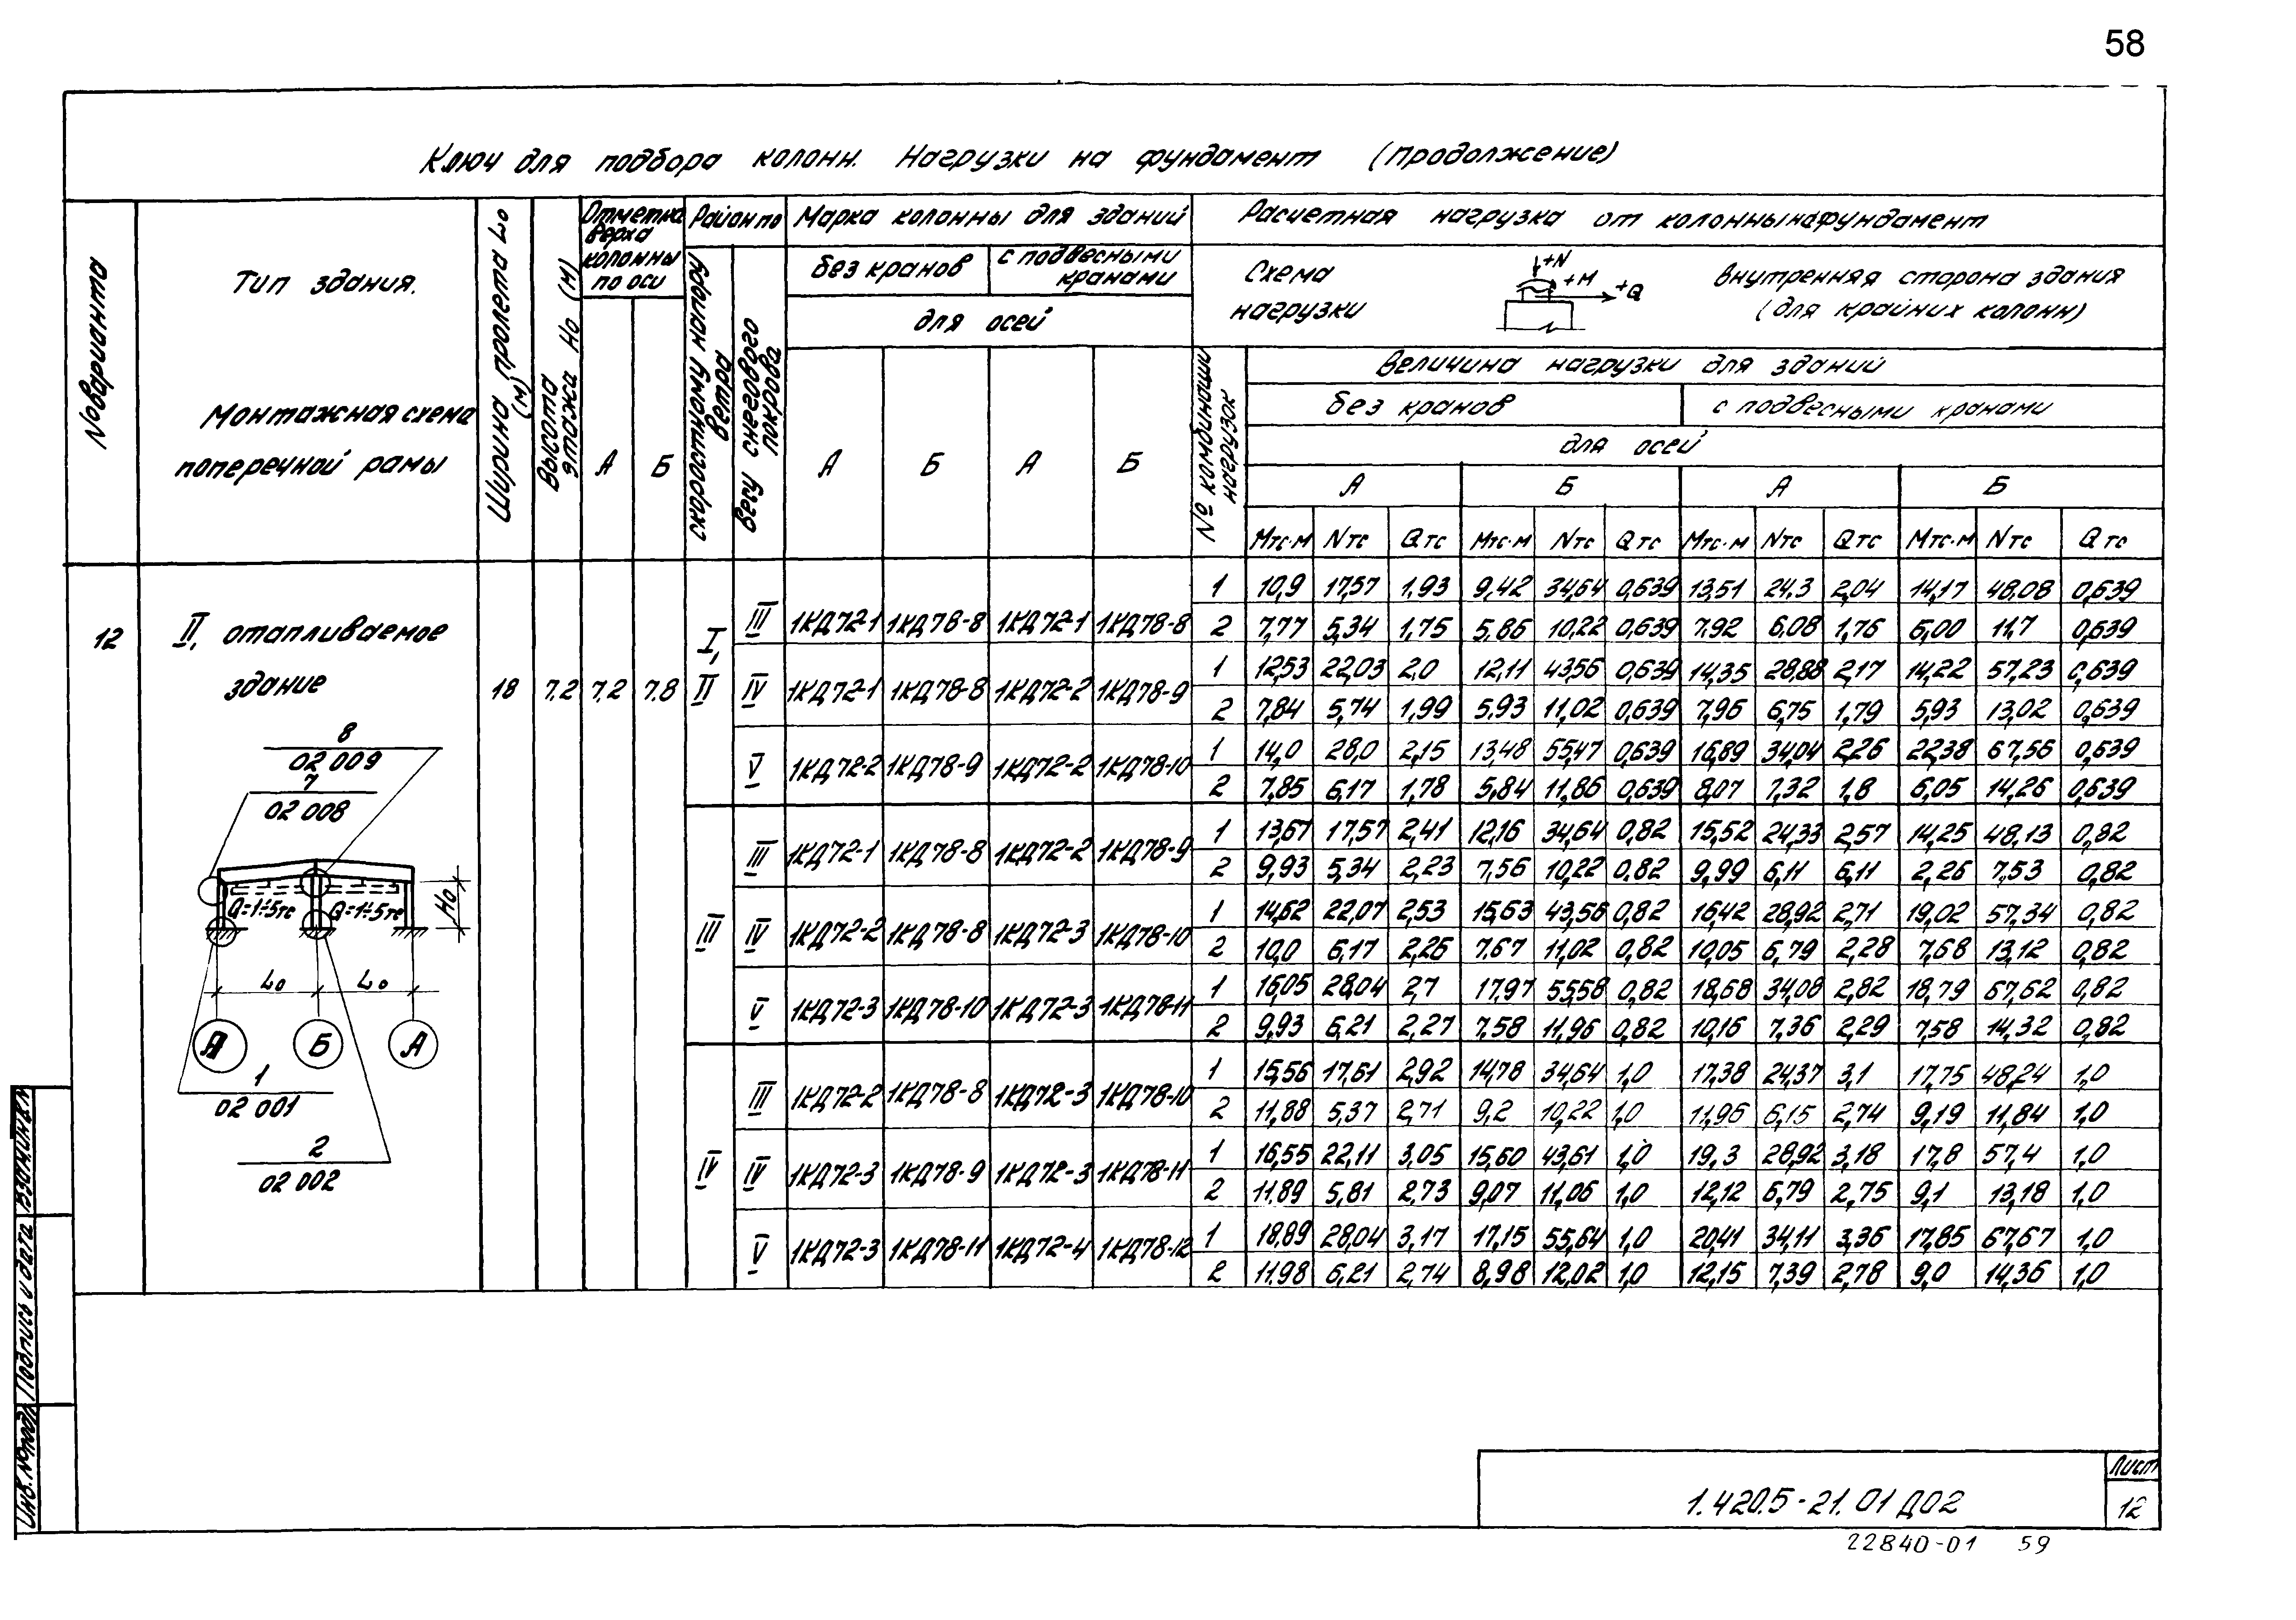 58
Ключ для подбора колонн. Нагрузки на фундамент (продолжение)
№ варианта
Тип здания.
Монтажная схема
поперечной рамы
Ширина пролета Lo (м)
Высота этажа Но (м)
Отметка верха колонны по оси
А Б
Район по
скоростному напору ветра
весу снегового покрова
Марка колонны для зданий
без кранов
с подвесными кранами
для осей
А Б А Б
Расчетная нагрузка от колонны на фундамент
Схема нагрузки
+N
+M
+Q
внутренняя сторона здания
(для крайних колонн)
№ комбинации нагрузок
Величина нагрузки для зданий
без кранов с подвесными кранами
для осей
А Б А Б
Мтс·м Nтс Qтс Мтс·м Nтс Qтс Мтс·м Nтс Qтс Мтс·м Nтс Qтс
12
II, отапливаемое
здание
18 7.2 7.2 7.8
I, II
III 1КД72-1 1КД78-8 1КД72-1 1КД78-8
1 10,9 17,57 1,93 9,42 34,64 0,639 13,51 24,3 2,04 14,17 48,08 0,639
2 7,77 5,34 1,75 5,86 10,22 0,639 7,92 6,08 1,76 6,00 11,7 0,639
IV 1КД72-1 1КД78-8 1КД72-2 1КД78-9
1 12,53 22,03 2,0 12,11 43,56 0,639 14,35 28,88 2,17 14,22 57,23 0,639
2 7,84 5,74 1,99 5,93 11,02 0,639 7,96 6,75 1,79 5,93 13,02 0,639
V 1КД72-2 1КД78-9 1КД72-2 1КД78-10
1 14,0 28,0 2,15 13,48 55,47 0,639 16,89 34,04 2,26 22,38 67,56 0,639
2 7,85 6,17 1,78 5,84 11,86 0,639 8,07 7,32 1,8 6,05 14,26 0,639
III
III 1КД72-1 1КД78-8 1КД72-2 1КД78-9
1 13,67 17,57 2,41 12,16 34,64 0,82 15,52 24,33 2,57 14,25 48,13 0,82
2 9,93 5,34 2,23 7,56 10,22 0,82 9,99 6,11 6,11 2,26 7,53 0,82
IV 1КД72-2 1КД78-8 1КД72-3 1КД78-10
1 14,62 22,07 2,53 15,63 43,56 0,82 16,42 28,92 2,71 19,02 57,34 0,82
2 10,0 6,17 2,26 7,67 11,02 0,82 10,05 6,79 2,28 7,68 13,12 0,82
V 1КД72-3 1КД78-10 1КД72-3 1КД78-11
1 16,05 28,04 2,7 17,97 55,58 0,82 18,68 34,08 2,82 18,79 67,62 0,82
2 9,93 6,21 2,27 7,58 11,96 0,82 10,16 7,36 2,29 7,58 14,32 0,82
IV
III 1КД72-2 1КД78-8 1КД72-3 1КД78-10
1 15,56 17,61 2,92 14,78 34,64 1,0 17,38 24,37 3,1 17,75 48,24 1,0
2 11,88 5,37 2,71 9,2 10,22 1,0 11,96 6,15 2,74 9,19 11,84 1,0
IV 1КД72-3 1КД78-9 1КД72-3 1КД78-11
1 16,55 22,11 3,05 15,60 43,61 1,0 19,3 28,92 3,18 17,8 57,4 1,0
2 11,89 5,81 2,73 9,07 11,06 1,0 12,12 6,79 2,75 9,1 13,18 1,0
V 1КД72-3 1КД78-11 1КД72-4 1КД78-12
1 18,89 28,04 3,17 17,15 55,64 1,0 20,41 34,11 3,36 17,85 67,67 1,0
2 11,98 6,21 2,74 8,98 12,02 1,0 12,15 7,39 2,78 9,0 14,36 1,0
8
02 009
7
02 008
Q=1÷5тс Q=1÷5тс
Но
Lo Lo
А Б А
1
02 001
2
02 002
Взам.инв.№
Подпись и дата
Инв.№подл.
1.420.5-21.01 Д02
Лист
12
22840-01 59